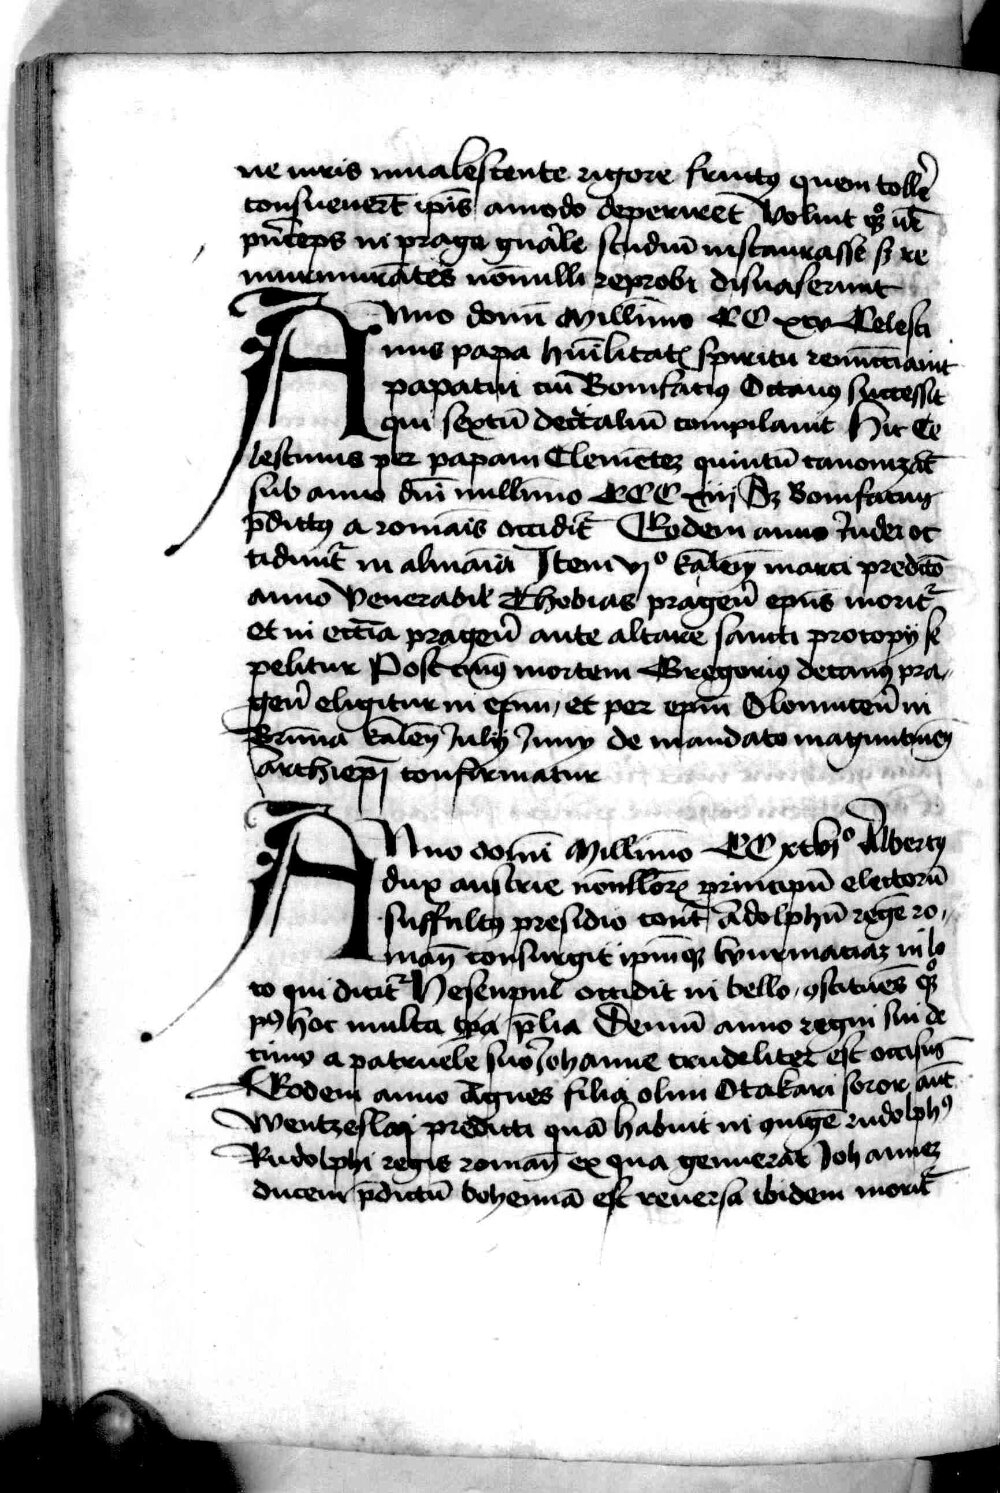 ne iuris inualescente rigore fructꝰ quem tolle᷑
consueuer̄t ip̄is amodo deperiret Voluit qͦꝫ idē
pn̄ceps in praga gn̄ale studiū instaurasse sꝫ re
murmurātes nōnulli reprobi disuaserunt
Anno domī Millīmo CC xcv Celesti
nus papa hūilitatꝭ spiritu renūcciauit
papatui cui Bonifacius Octauꝰ successit
qui sextū decītaliū compilauit Hic Ce
lestinus per papam Clemētez quintū canonizat᷑
sub anno dn̄i millīmo CCC xiij Sꝫ Bonifacius
p̄dictꝰ a romāis occidit᷑ Eodem anno Judei oc
cidūnt᷑ in almāia Item vjº kalen̄ marci predicto
anno Venerabil᷑ Thobias pragen̄ ep̄us morit᷑
et in ecc̄ia pragen̄ ante altare sancti procopij se
pelitur Post cuiꝰ mortem Gregoriꝰ decanꝰ pra-
gen̄ eligitur in ep̄um, et per ep̄m Olomucen̄ in
Brunna kalen̄ Julij Junij de mandato maguntinen̄
Archiep̄i confirmatur
Anno domī Millīmo CC xcvjº Albertꝰ
dux austrie nōnllorꝫ principū electorū
suffultꝰ presidio cont᷑ Adolphū regē ro,
man̄ consurgit ip̄mqꝫ wurmaciaꝫ in lo
co qui dicit᷑ Hesenpul occidit in bello
pꝰ hoc multa p̄lia Demū anno regni sui de
cimo a patruele suo Johanne crudeliter est occisus
Eodem anno Agnes filia olim Otakari soror aūt
Wentzeslai predicti quā habuit in ꝯiugē rudolphꝰ
Rudolphi regis roman̄ ex qua genuerat Johannez
ducem p̄dictū bohemiā est reuersa ibidem morit᷑